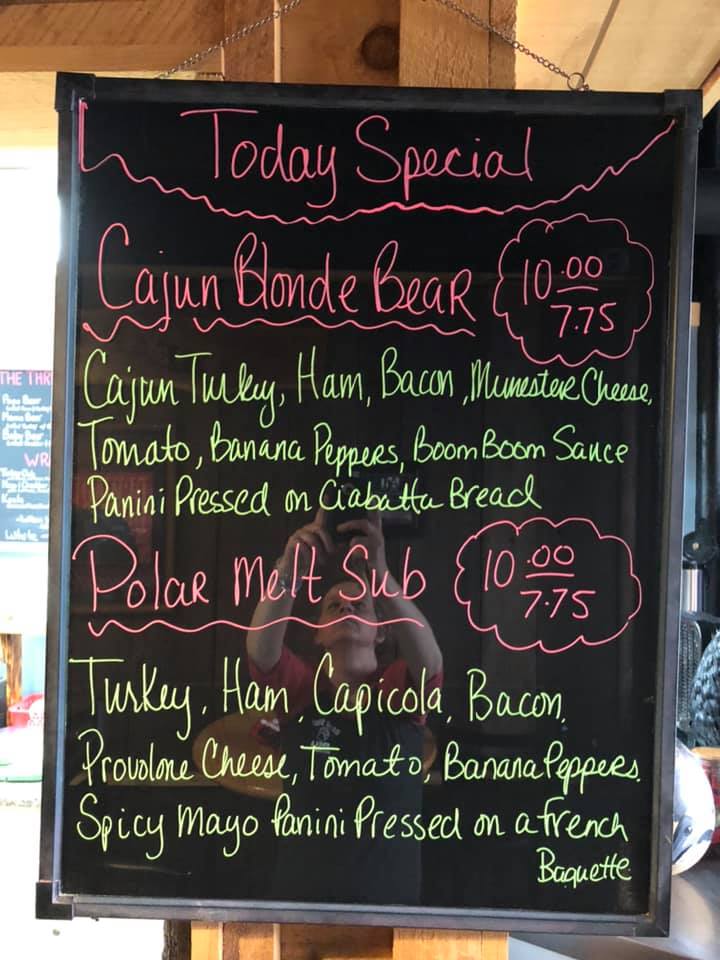 Today Special
Cajun Blonde Bear 10.00
7.75
Cajun Turkey, Ham, Bacon, Munester Cheese,
Tomato, Banana Peppers, Boom Boom Sauce
Panini Pressed on Ciabatta Bread
Polar Melt Sub 10.00
7.75
Turkey, Ham, Capicola, Bacon,
Provolone Cheese, Tomato, Banana Peppers.
Spicy Mayo Panini Pressed on a french
Baquette
THE THR
Papa Bear
Mama Bear
Baby Bear
WR